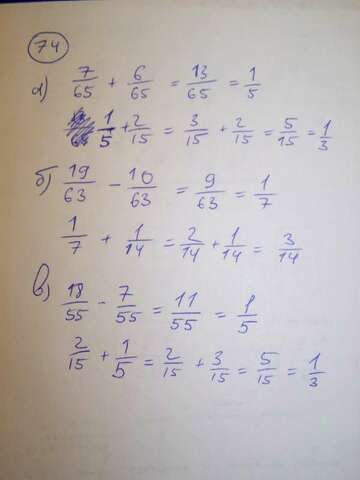 74
а) 7/65 + 6/65 = 13/65 = 1/5
1/5 + 2/15 = 3/15 + 2/15 = 5/15 = 1/3
б) 19/63 - 10/63 = 9/63 = 1/7
1/7 + 1/14 = 2/14 + 1/14 = 3/14
в) 18/55 - 7/55 = 11/55 = 1/5
2/15 + 1/5 = 2/15 + 3/15 = 5/15 = 1/3